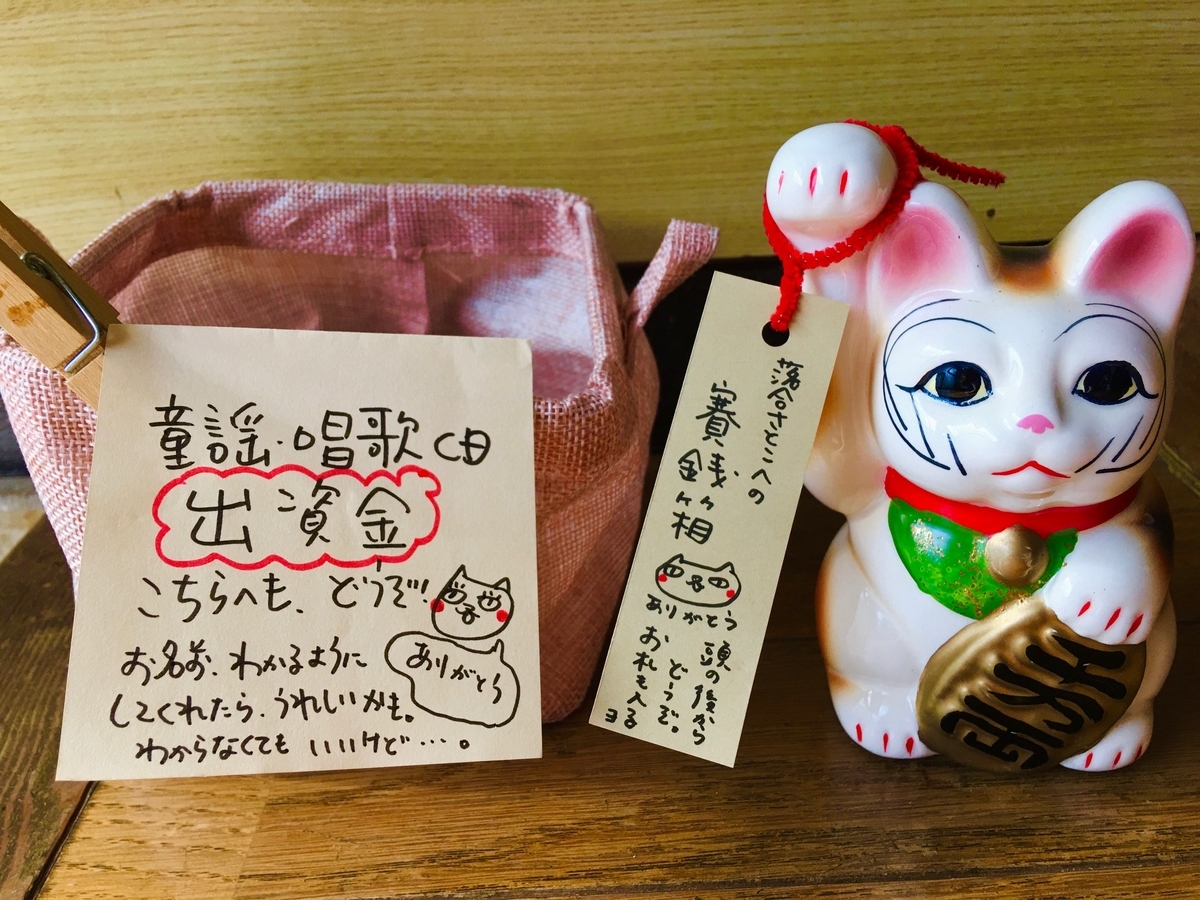 童謡・唱歌CD
出資金
こちらへも、どうぞ!
ありがとう
お名前、わかるように
してくれたら、うれしいかも。
わからなくても いいけど…。
落合さとこへの
賽銭箱
ありがとう
頭の後から
どーぞ。
お札も入るヨ